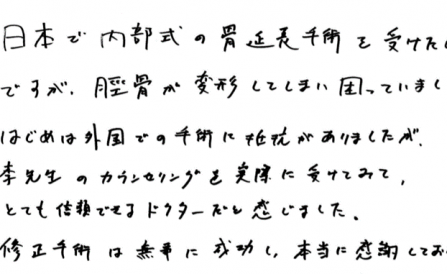 日本で内部式の骨延長手術を受けた
ですが、脛骨が変形してしまい困っていまし
はじめは外国での手術に抵抗がありましたが、
李先生のカウンセリングを実際に受けてみて、
とても信頼できるドクターだと感じました。
修正手術は無事に成功し、本当に感謝してお